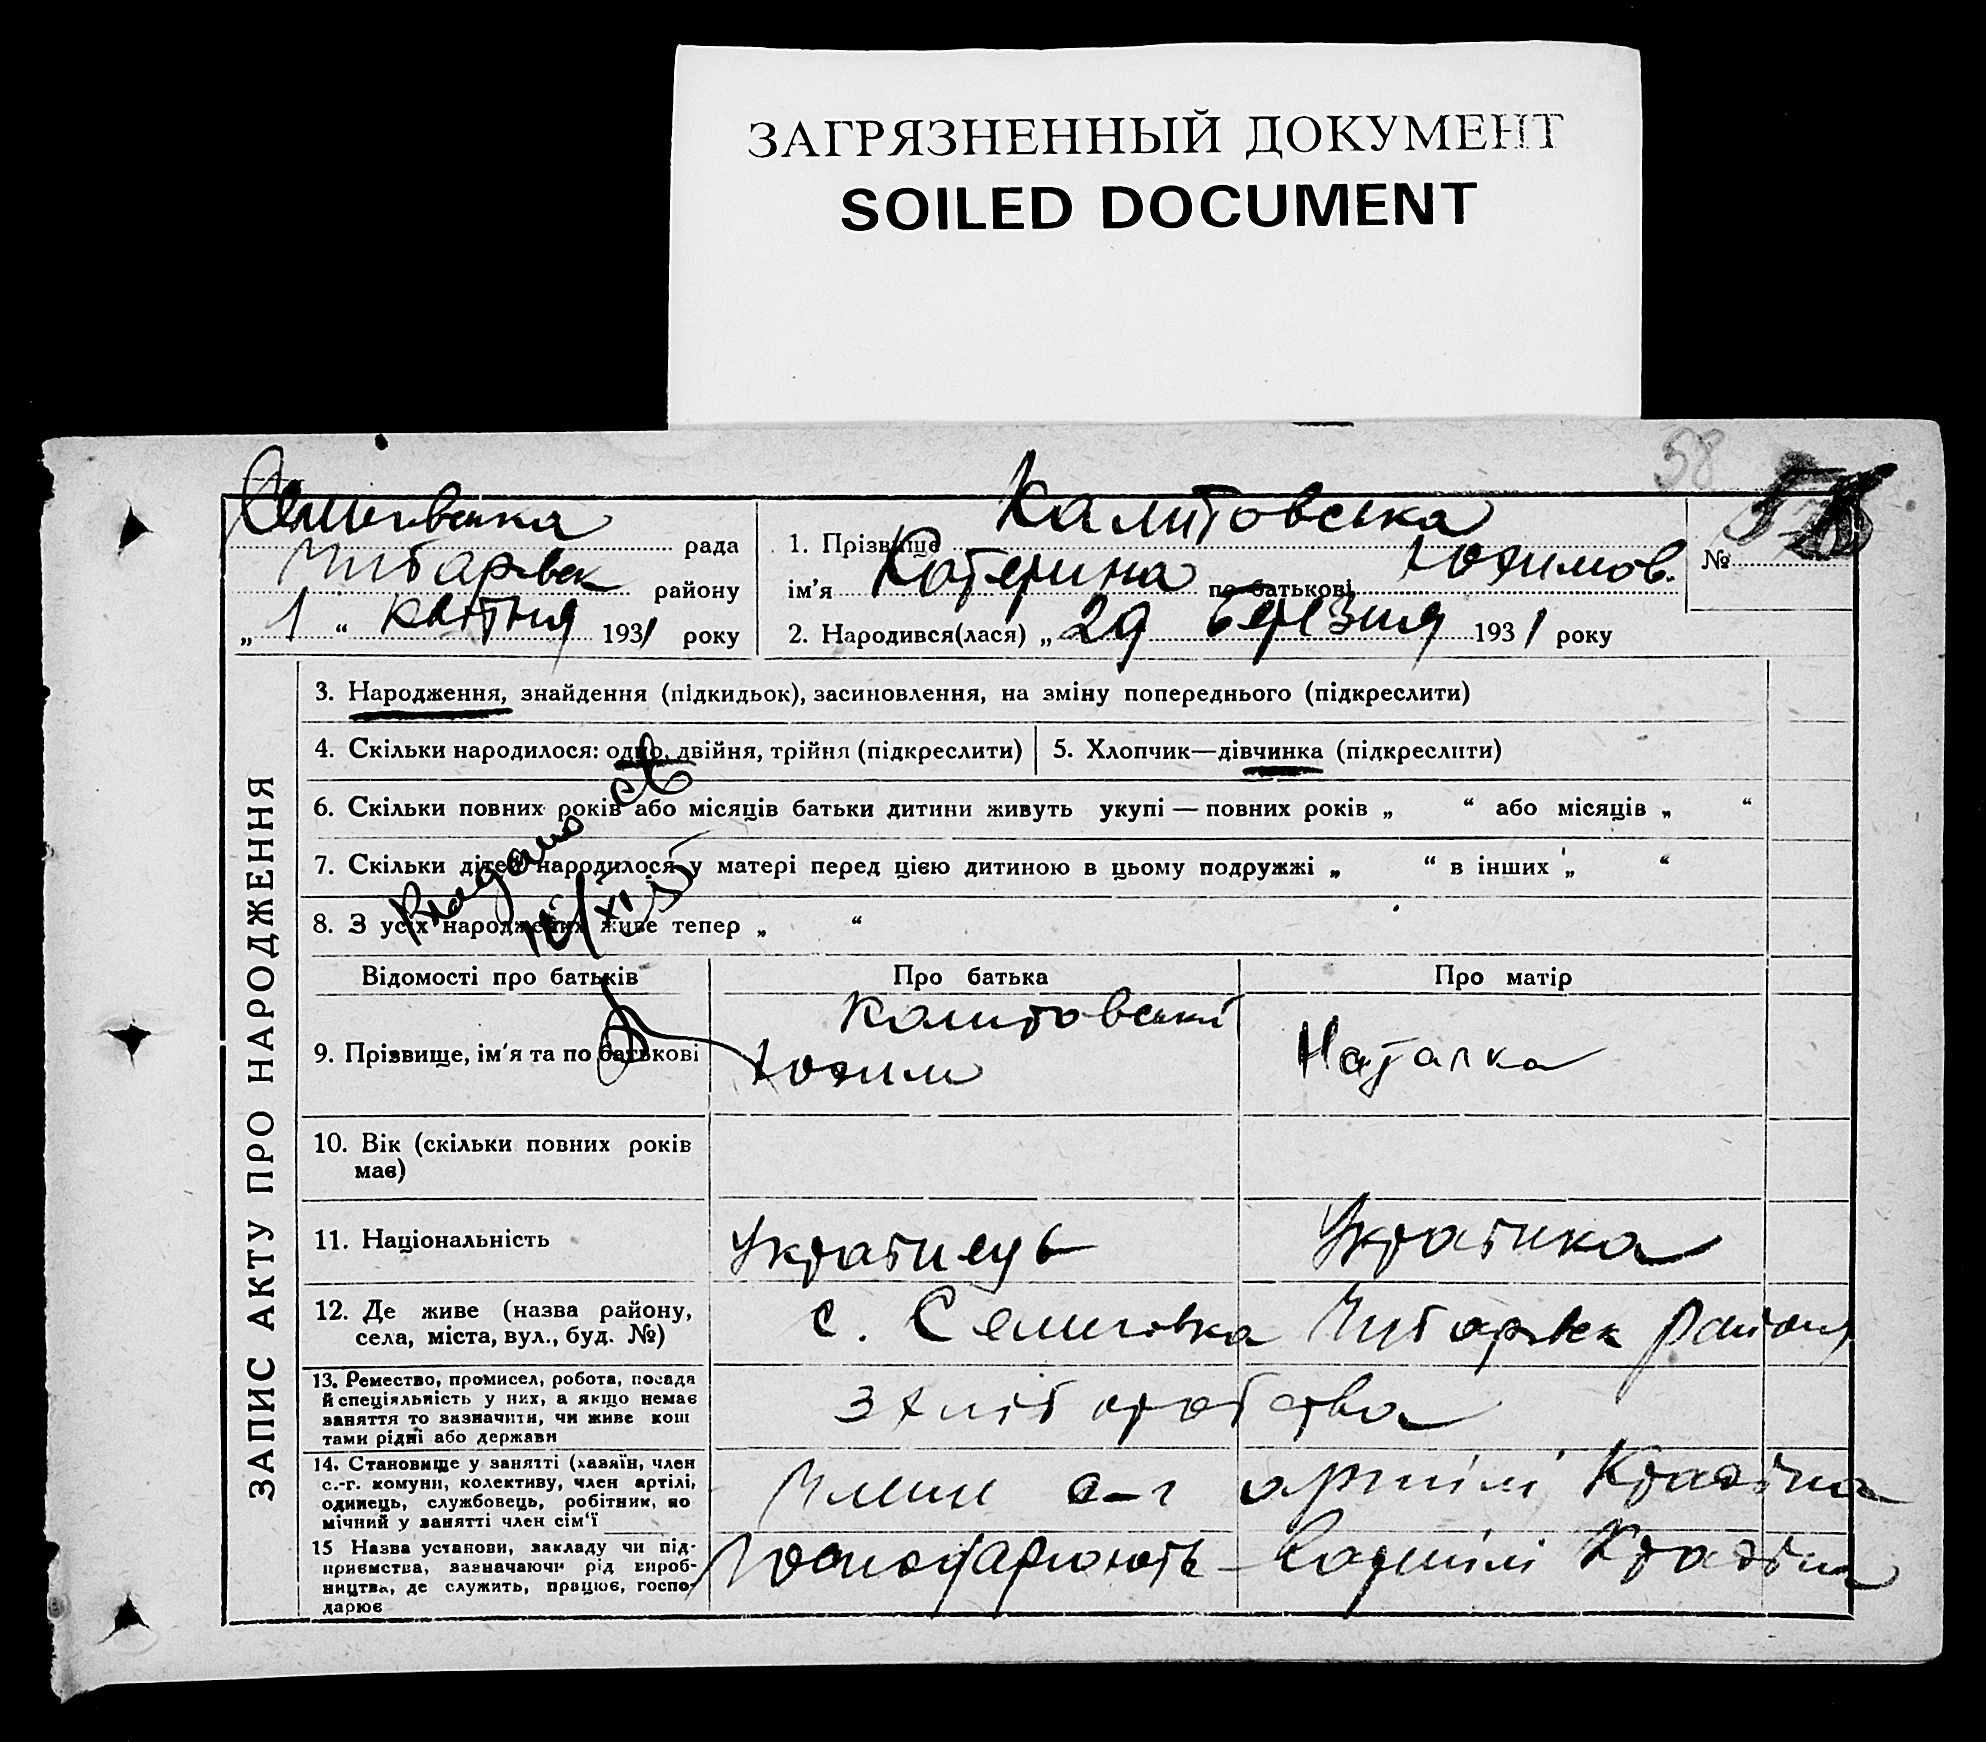 ЗАГРЯЗНЕННЫЙ ДОКУМЕНТ
SOILED DOCUMENT
58
рада
району
„ 1 “ квітня 1931 року
Калитовська
1. Прізвище
ім’я Катерина по батькові Юхимов.
2. Народився(лася) „ 29 березня 1931 року
№ 58
ЗАПИС АКТУ ПРО НАРОДЖЕННЯ
3. Народження, знайдення (підкидьок), засиновлення, на зміну попереднього (підкреслити)
4. Скільки народилося: одно, двійня, трійня (підкреслити)
5. Хлопчик—дівчинка (підкреслити)
6. Скільки повних років або місяців батьки дитини живуть укупі — повних років „ “ або місяців „ “
7. Скільки дітей народилося у матері перед цією дитиною в цьому подружжі „ “ в інших „ “
8. З усіх народжених живе тепер „ “
Відомості про батьків
Про батька
Про матір
9. Прізвище, ім’я та по батькові
Калитовський
Юхим
Наталка
10. Вік (скільки повних років
має)
11. Національність
Українець
Українка
12. Де живе (назва району,
села, міста, вул., буд. №)
с.
району
13. Ремество, промисел, робота, посада
й спеціяльність у них, а якщо немає
заняття то зазначити, чи живе кош
тами рідні або держави
хліборобства
14. Становище у занятті (хазяїн, член
с.-г. комуни, колективу, член артілі,
одинець, службовець, робітник, по
мічний у занятті член сім‘ї
Члени с-г артілі
15 Назва установи, закладу чи під-
приємства, зазначаючи рід вироб-
ництва, де служить, працює, госпо-
дарює
Господарюють в артілі